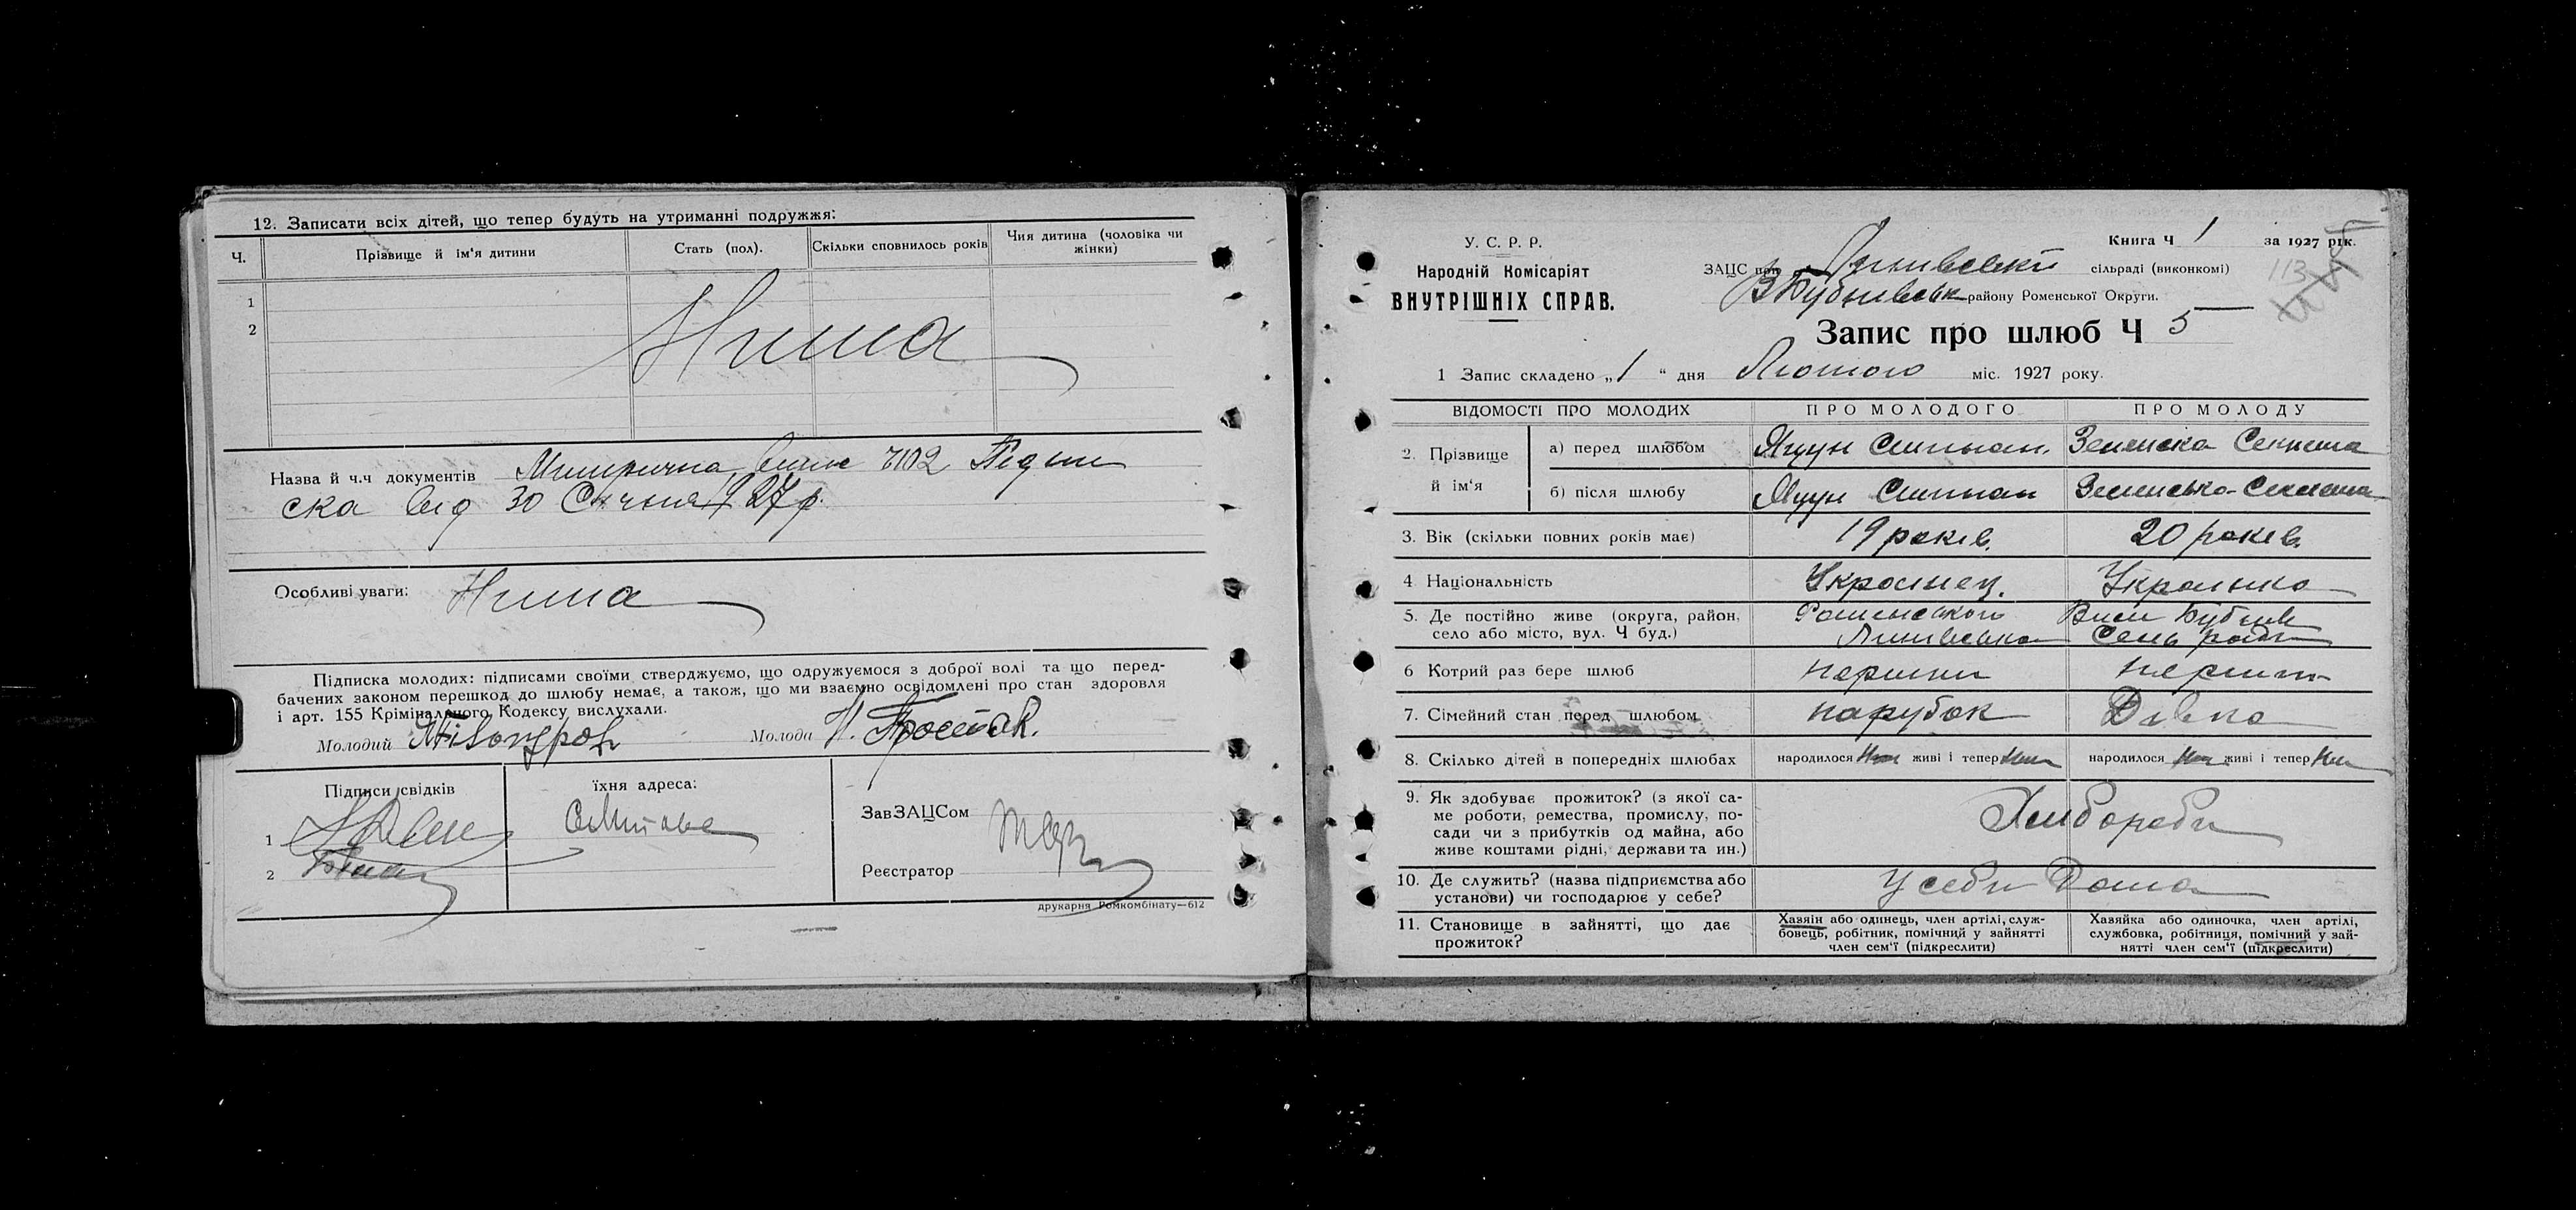 12. Записати всіх дітей, що тепер будуть на утриманні подружжя:
Ч. Прізвище й ім'я дитини Стать (пол). Скільки сповнилось років Чия дитина (чоловіка чи жінки)
1
2
Нима
Назва й ч.ч документів Метрична 7102 Підпи
ска від 30 Січня 1927 р.
Особливі уваги: Нима
Підписка молодих: підписами своїми стверджуємо, що одружуємося з доброї волі та що перед-
бачених законом перешкод до шлюбу немає, а також, що ми взаємно освідомлені про стан здоровля
і арт. 155 Крімінального Кодексу вислухали.
Молодий Молода
Підписи свідків їхня адреса:
ЗавЗАЦСом
1
2
Реєстратор
друкарня Ромкомбінату—612
У. С. Р. Р.
Народній Комісаріят
ВНУТРІШНІХ СПРАВ.
Книга Ч 1 за 1927 рік.
ЗАЦС при сільраді (виконкомі)
113
В Бубнівськ району Роменської Округи.
Запис про шлюб Ч 5
1 Запис складено „1“ дня Лютого міс. 1927 року.
ВІДОМОСТІ ПРО МОЛОДИХ ПРО МОЛОДОГО ПРО МОЛОДУ
2. Прізвище й ім'я
а) перед шлюбом Яцун Степан.
б) після шлюбу Яцун Степан
3. Вік (скільки повних років має) 19 років. 20 років.
4 Національність Украінец. Украінка
5. Де постійно живе (округа, район,
село або місто, вул. Ч буд.)
Роменського
6 Котрий раз бере шлюб перший перший
7. Сімейний стан перед шлюбом парубок Дівка
8. Скілько дітей в попередніх шлюбах народилося Нем живі і тепер Нем народилося Нем живі і тепер Нем
9. Як здобуває прожиток? (з якої са-
ме роботи, ремества, промислу, по-
сади чи з прибутків од майна, або
живе коштами рідні, держави та ин.)
Хлібороби
10. Де служить? (назва підприємства або
установи) чи господарює у себе?
У себе Дома
11. Становище в зайнятті, що дає
прожиток?
Хазяін або одинець, член артілі, служ-
бовець, робітник, помічний у зайнятті
член сем'ї (підкреслити)
Хавяйка або одиночка, член артілі,
службовка, робітниця, помічний у зай-
нятті член сем'ї (підкреслити)